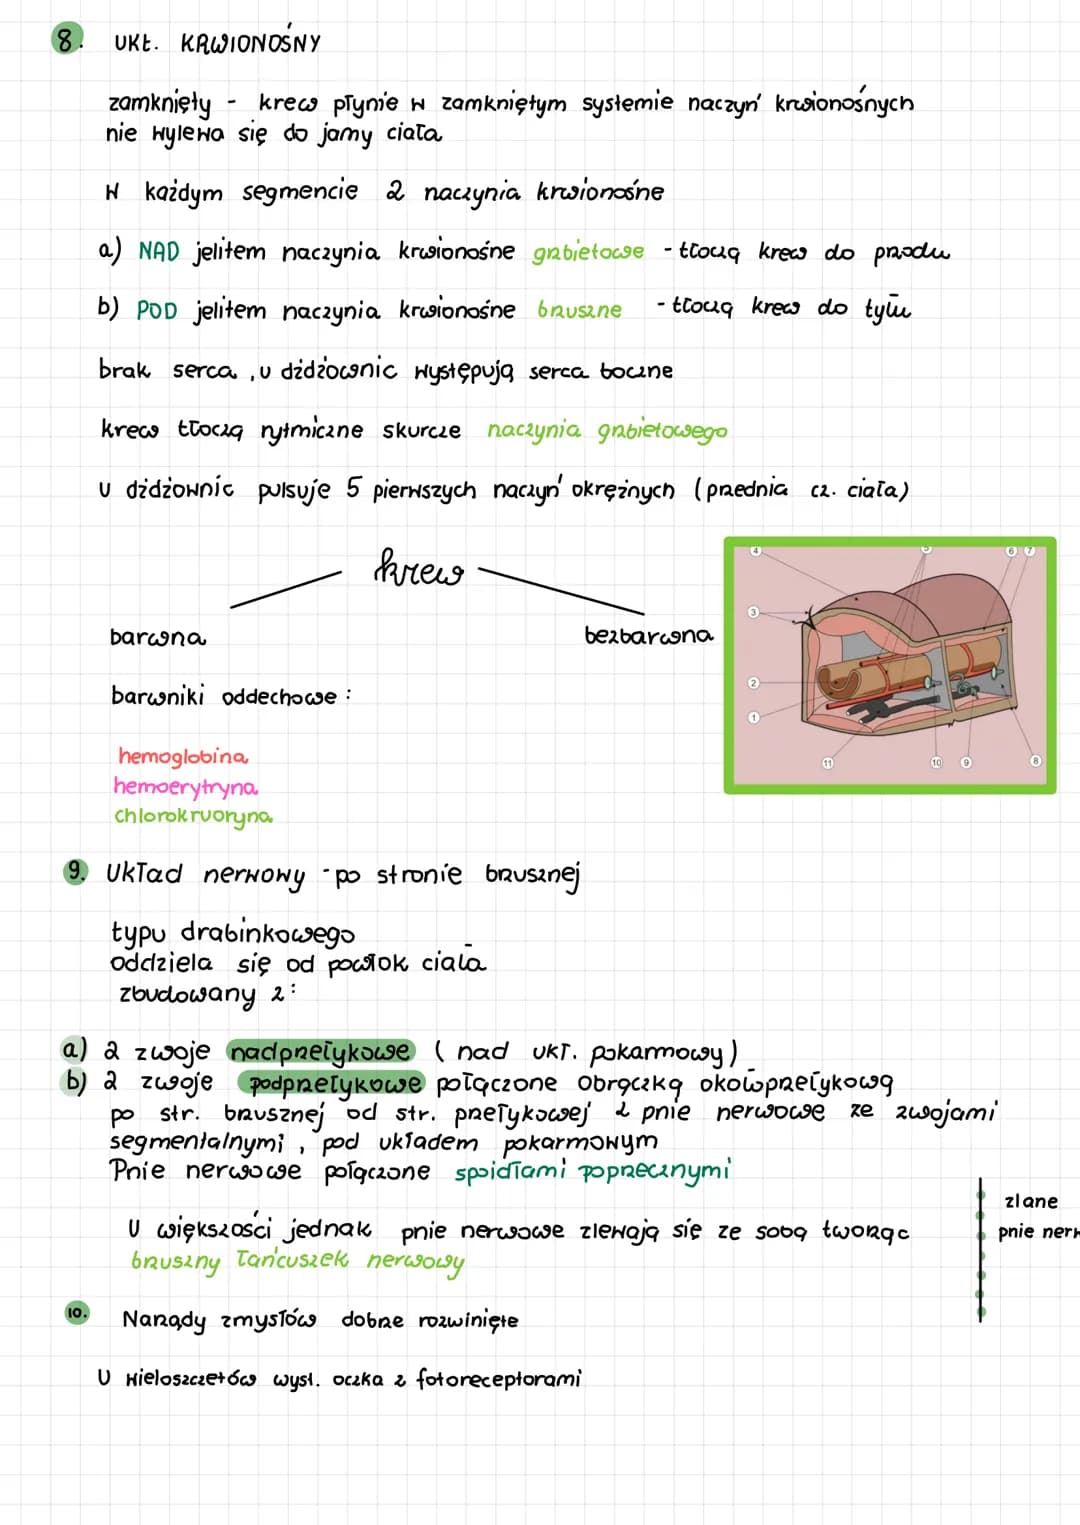 8. UKŁ. KRWIONOŚNY
zamknięty - krew płynie w zamkniętym systemie naczyń krwionośnych
nie wylewa się do jamy ciała
W każdym segmencie 2 naczynia krwionośne
a) NAD jelitem naczynia krwionośne grzbietowe - tłoczą krew do przodu
b) POD jelitem naczynia krwionośne brzuszne - tłoczą krew do tyłu
brak serca, u dżdżownic występują serca boczne
krew tłoczą rytmiczne skurcze naczynia grzbietowego
U dżdżownic pulsuje 5 pierwszych naczyń okrężnych (przednia cz. ciała)
krew
barwna bezbarwna
barwniki oddechowe:
hemoglobina
hemoerytryna
chlorokruoryna
4 5 6 7
3
2
1
11 10 9 8
9. Układ nerwowy - po stronie brzusznej
typu drabinkowego
oddziela się od powłok ciała
zbudowany z:
a) 2 zwoje nadprzełykowe (nad ukł. pokarmowy)
b) 2 zwoje podprzełykowe połączone obrączką okołoprzełykową
po str. brzusznej od str. przełykowej 2 pnie nerwowe ze zwojami
segmentalnymi, pod układem pokarmowym
Pnie nerwowe połączone spoidłami poprzecznymi
U większości jednak pnie nerwowe zlewają się ze sobą tworząc
brzuszny łańcuszek nerwowy
zlane
pnie nerw
10. Narządy zmysłów dobrze rozwinięte
U wieloszczetów wyst. oczka z fotoreceptorami